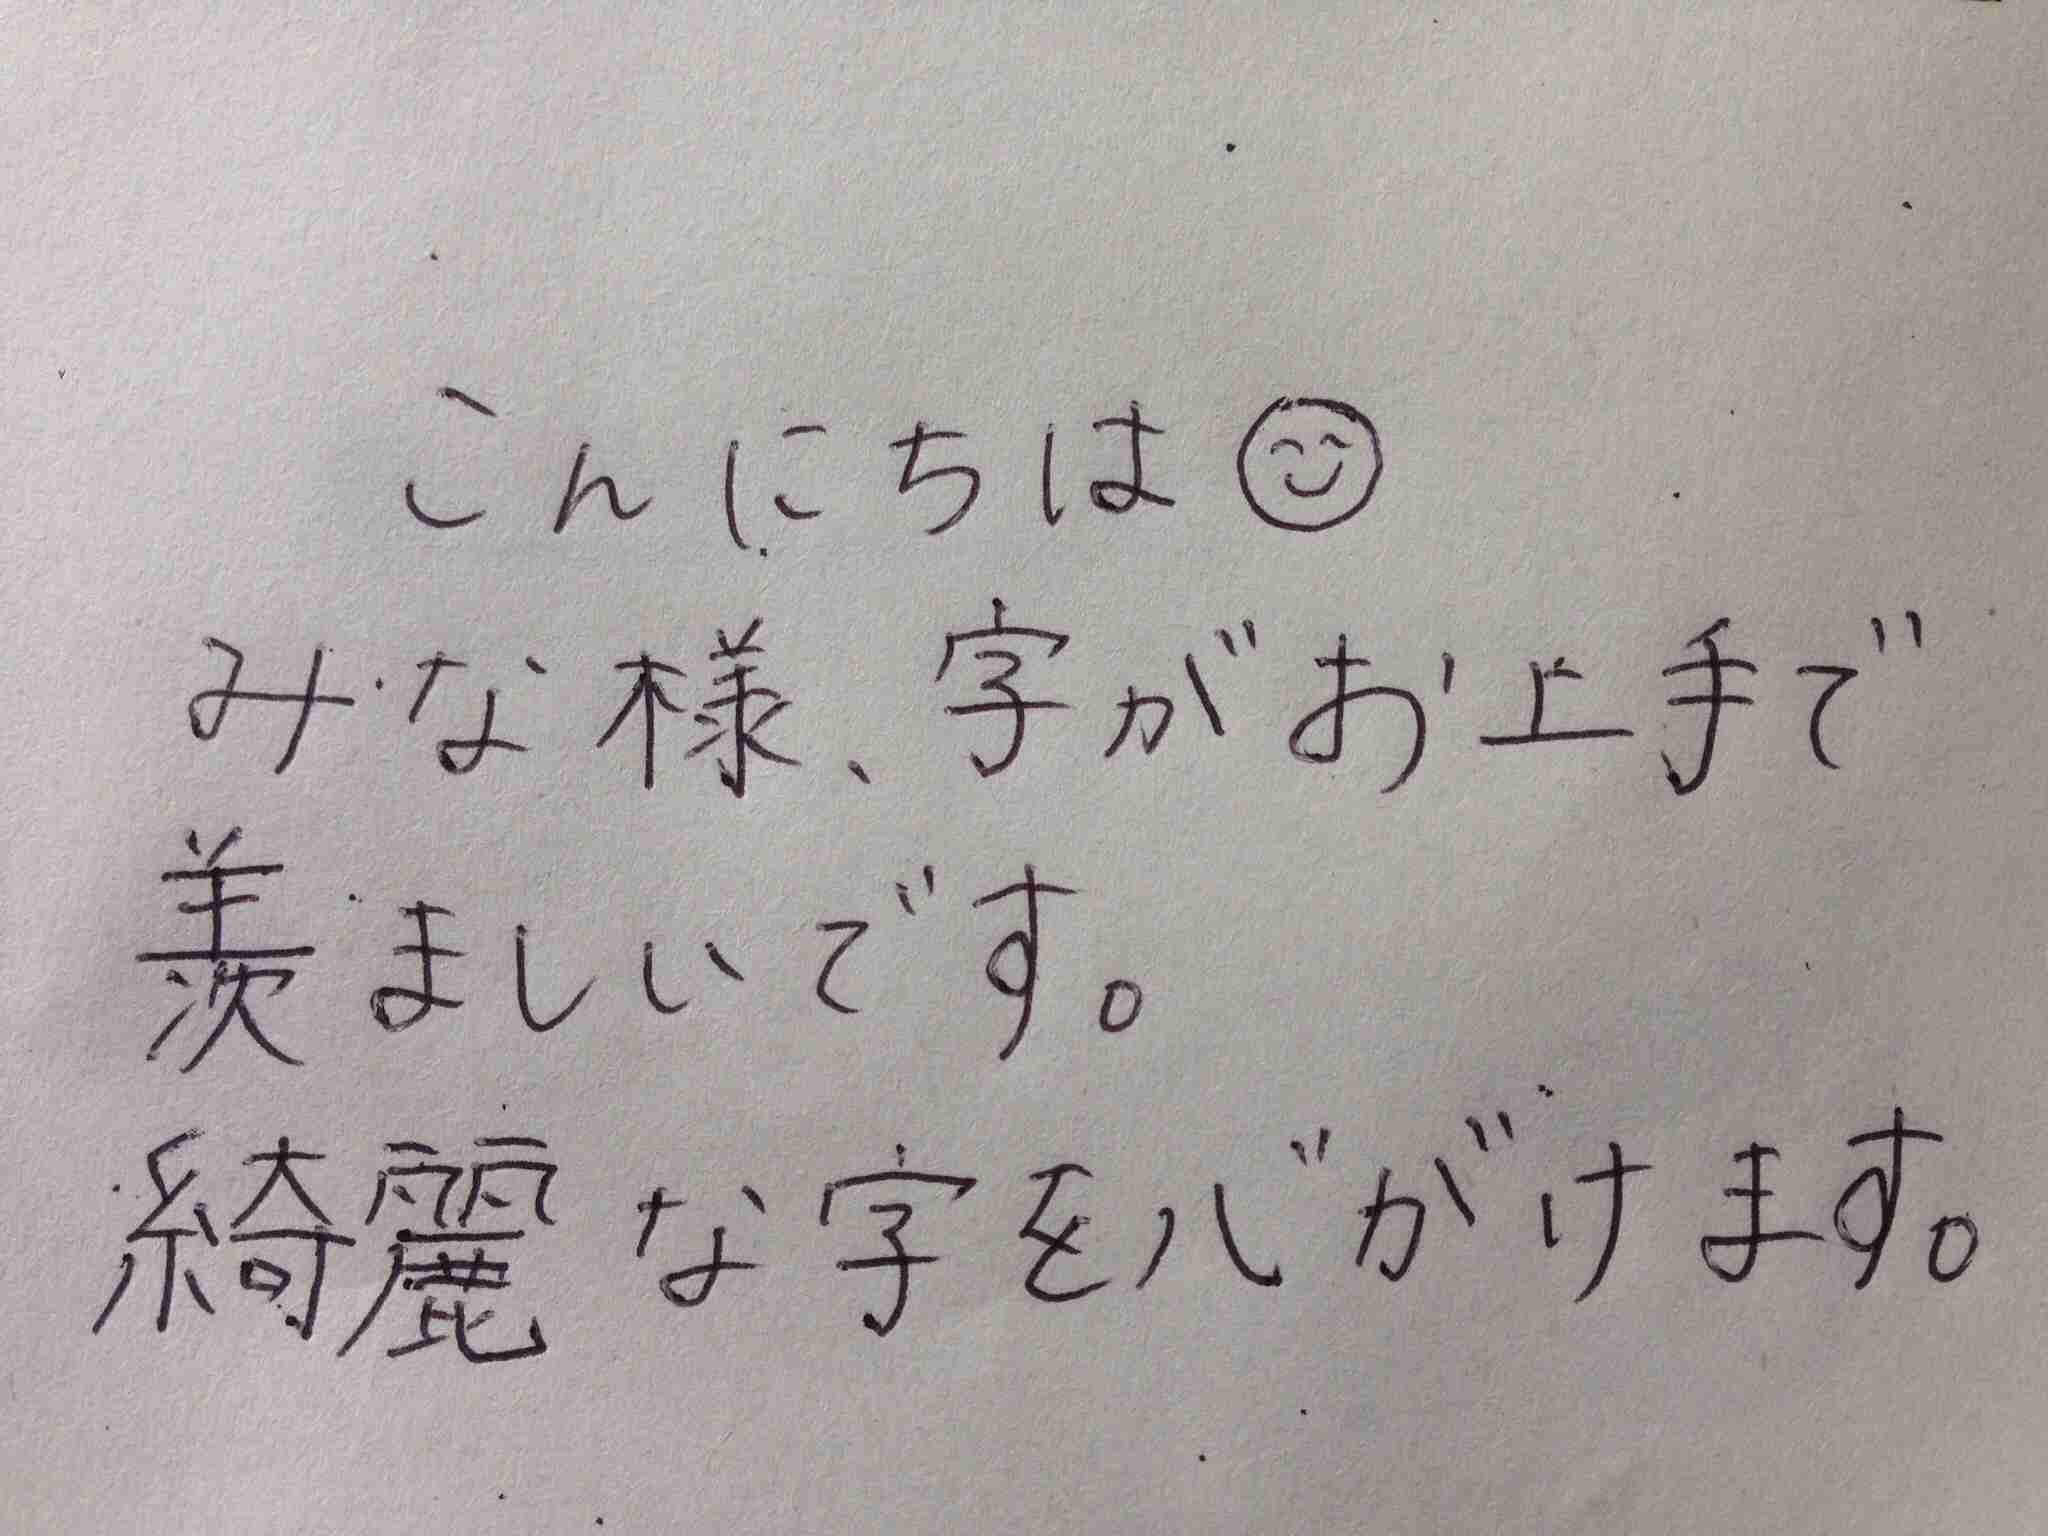 こんにちは😊
みな様、字がお上手で
羨ましいです。
綺麗な字を心がけます。